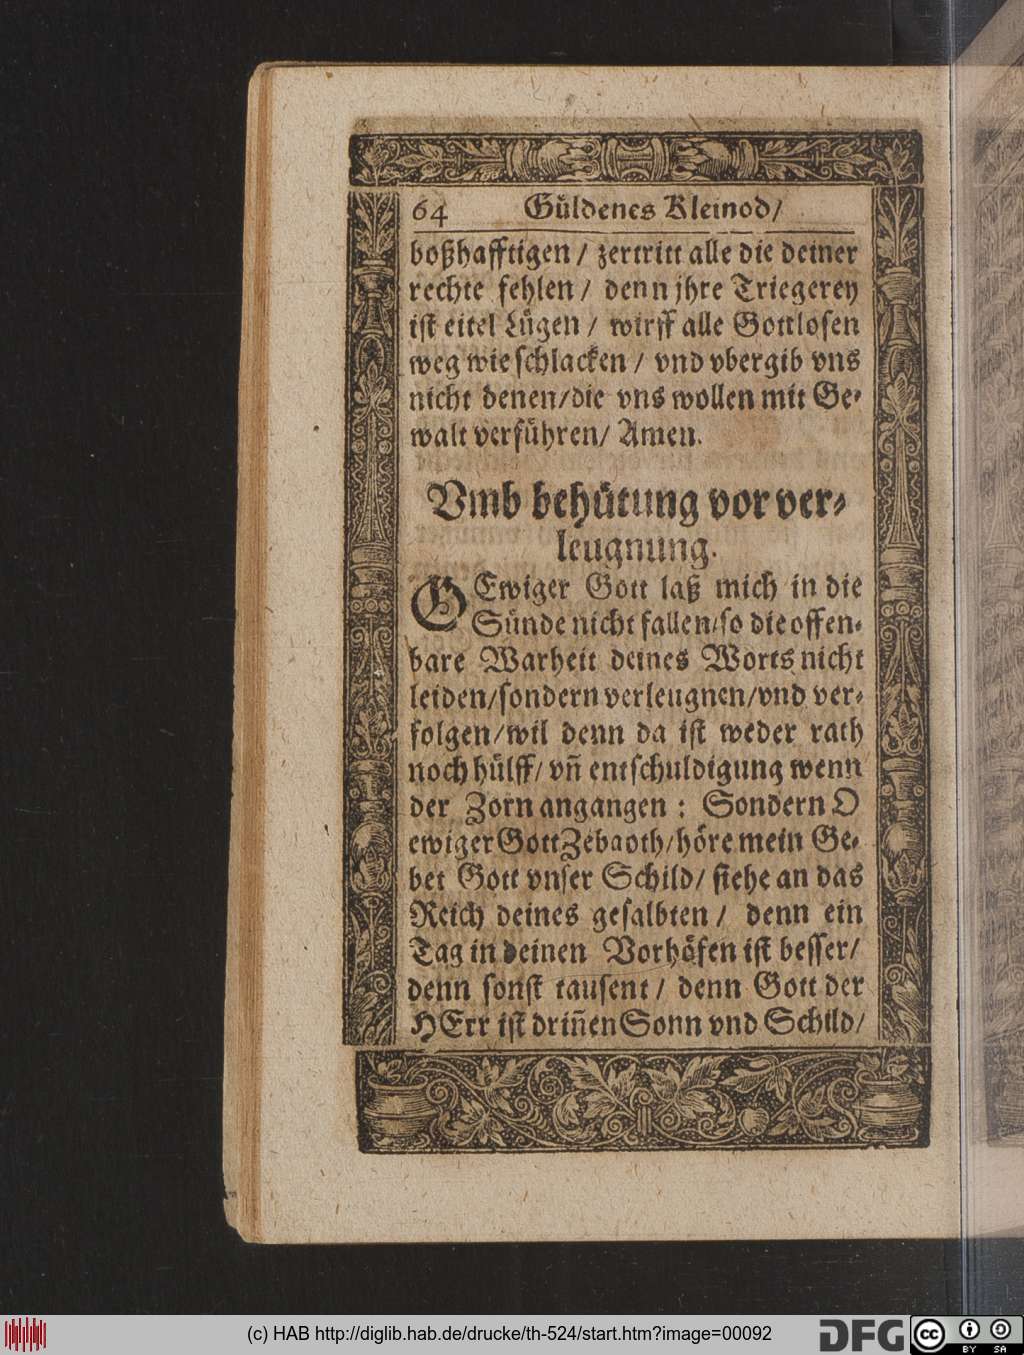 64 Güldenes Kleinod/
boßhafftigen / zertritt alle die deiner
rechte fehlen / denn jhre Triegerey
ist eitel Lügen / wirff alle Gottlosen
weg wie schlacken / vnd vbergib vns
nicht denen/die vns wollen mit Ge-
walt verführen/ Amen.
Vmb behütung vor ver-
leugnung.
O Ewiger Gott laß mich in die
Sünde nicht fallen/so die offen-
bare Warheit deines Worts nicht
leiden/sondern verleugnen/vnd ver-
folgen/wil denn da ist weder rath
noch hülff/ vñ entschuldigung wenn
der Zorn angangen : Sondern O
ewiger Gott Zebaoth/höre mein Ge-
bet Gott vnser Schild/ siehe an das
Reich deines gesalbten / denn ein
Tag in deinen Vorhöfen ist besser/
denn sonst tausent / denn Gott der
HErr ist driñen Sonn vnd Schild/
(c) HAB http://diglib.hab.de/drucke/th-524/start.htm?image=00092
DFG
cc
BY SA